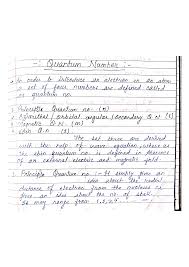 -: Quantum Number :-
In order to introduce an electron in an atom
a set of four numbers are defined called
as quantum no.
1. Principle Quantum no. (n)
2. Azimuthal / Orbital angular / Secondary Q.N (l)
3. Magnetic Q.N. (m)
4. Spin Q.n (s)
The set three are derived
with the help of wave equation where as
the spin quantum no. is defined in presence
of an external electric and magnetic field.
1. Principle Quantum no :- It simply give an
idea about the radial
distance of electron from the nucleus or
give an idea about the no. of shell.
It may range from 1,2,3,4